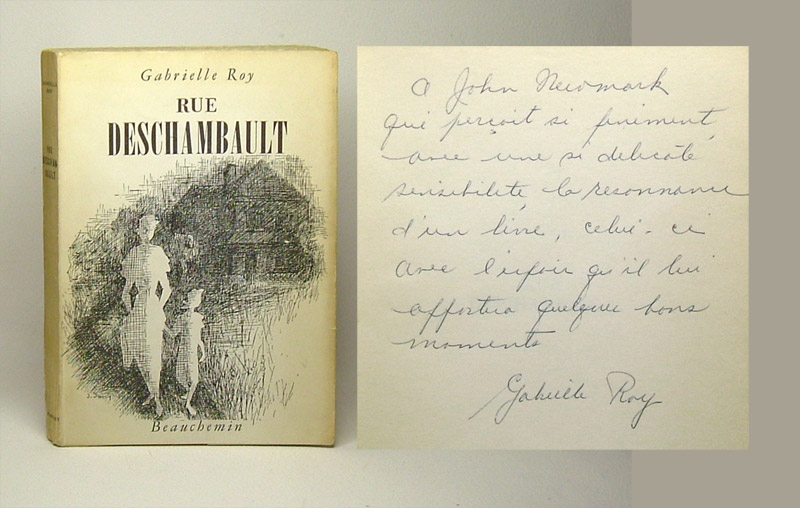 Gabrielle Roy
RUE
DESCHAMBAULT
Beauchemin
GABRIELLE
ROY
RUE
DESCHAM-
BAULT
A John Newmark
qui perçoit si finement,
avec une si délicate
sensibilité, la résonnance
d'un livre, celui-ci
avec l'espoir qu'il lui
apportera quelques bons
moments
Gabrielle Roy